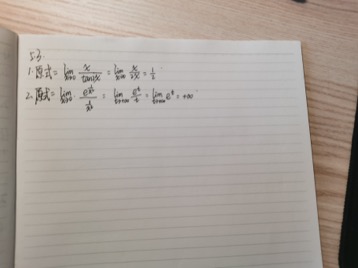 5.3.
1. 原式 = lim x→0 x/tan2x = lim x→0 x/2x = 1/2
2. 原式 = lim x→0 e^(1/x²)/(1/x²) = lim t→+∞ e^t/t = lim t→+∞ e^t = +∞